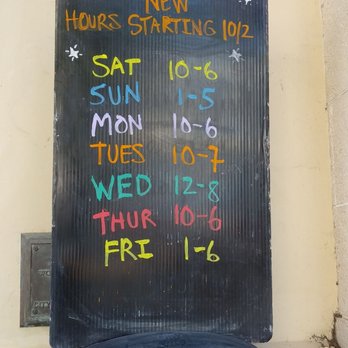 NEW
HOURS STARTING 10/2
SAT 10-6
SUN 1-5
MON 10-6
TUES 10-7
WED 12-8
THUR 10-6
FRI 1-6